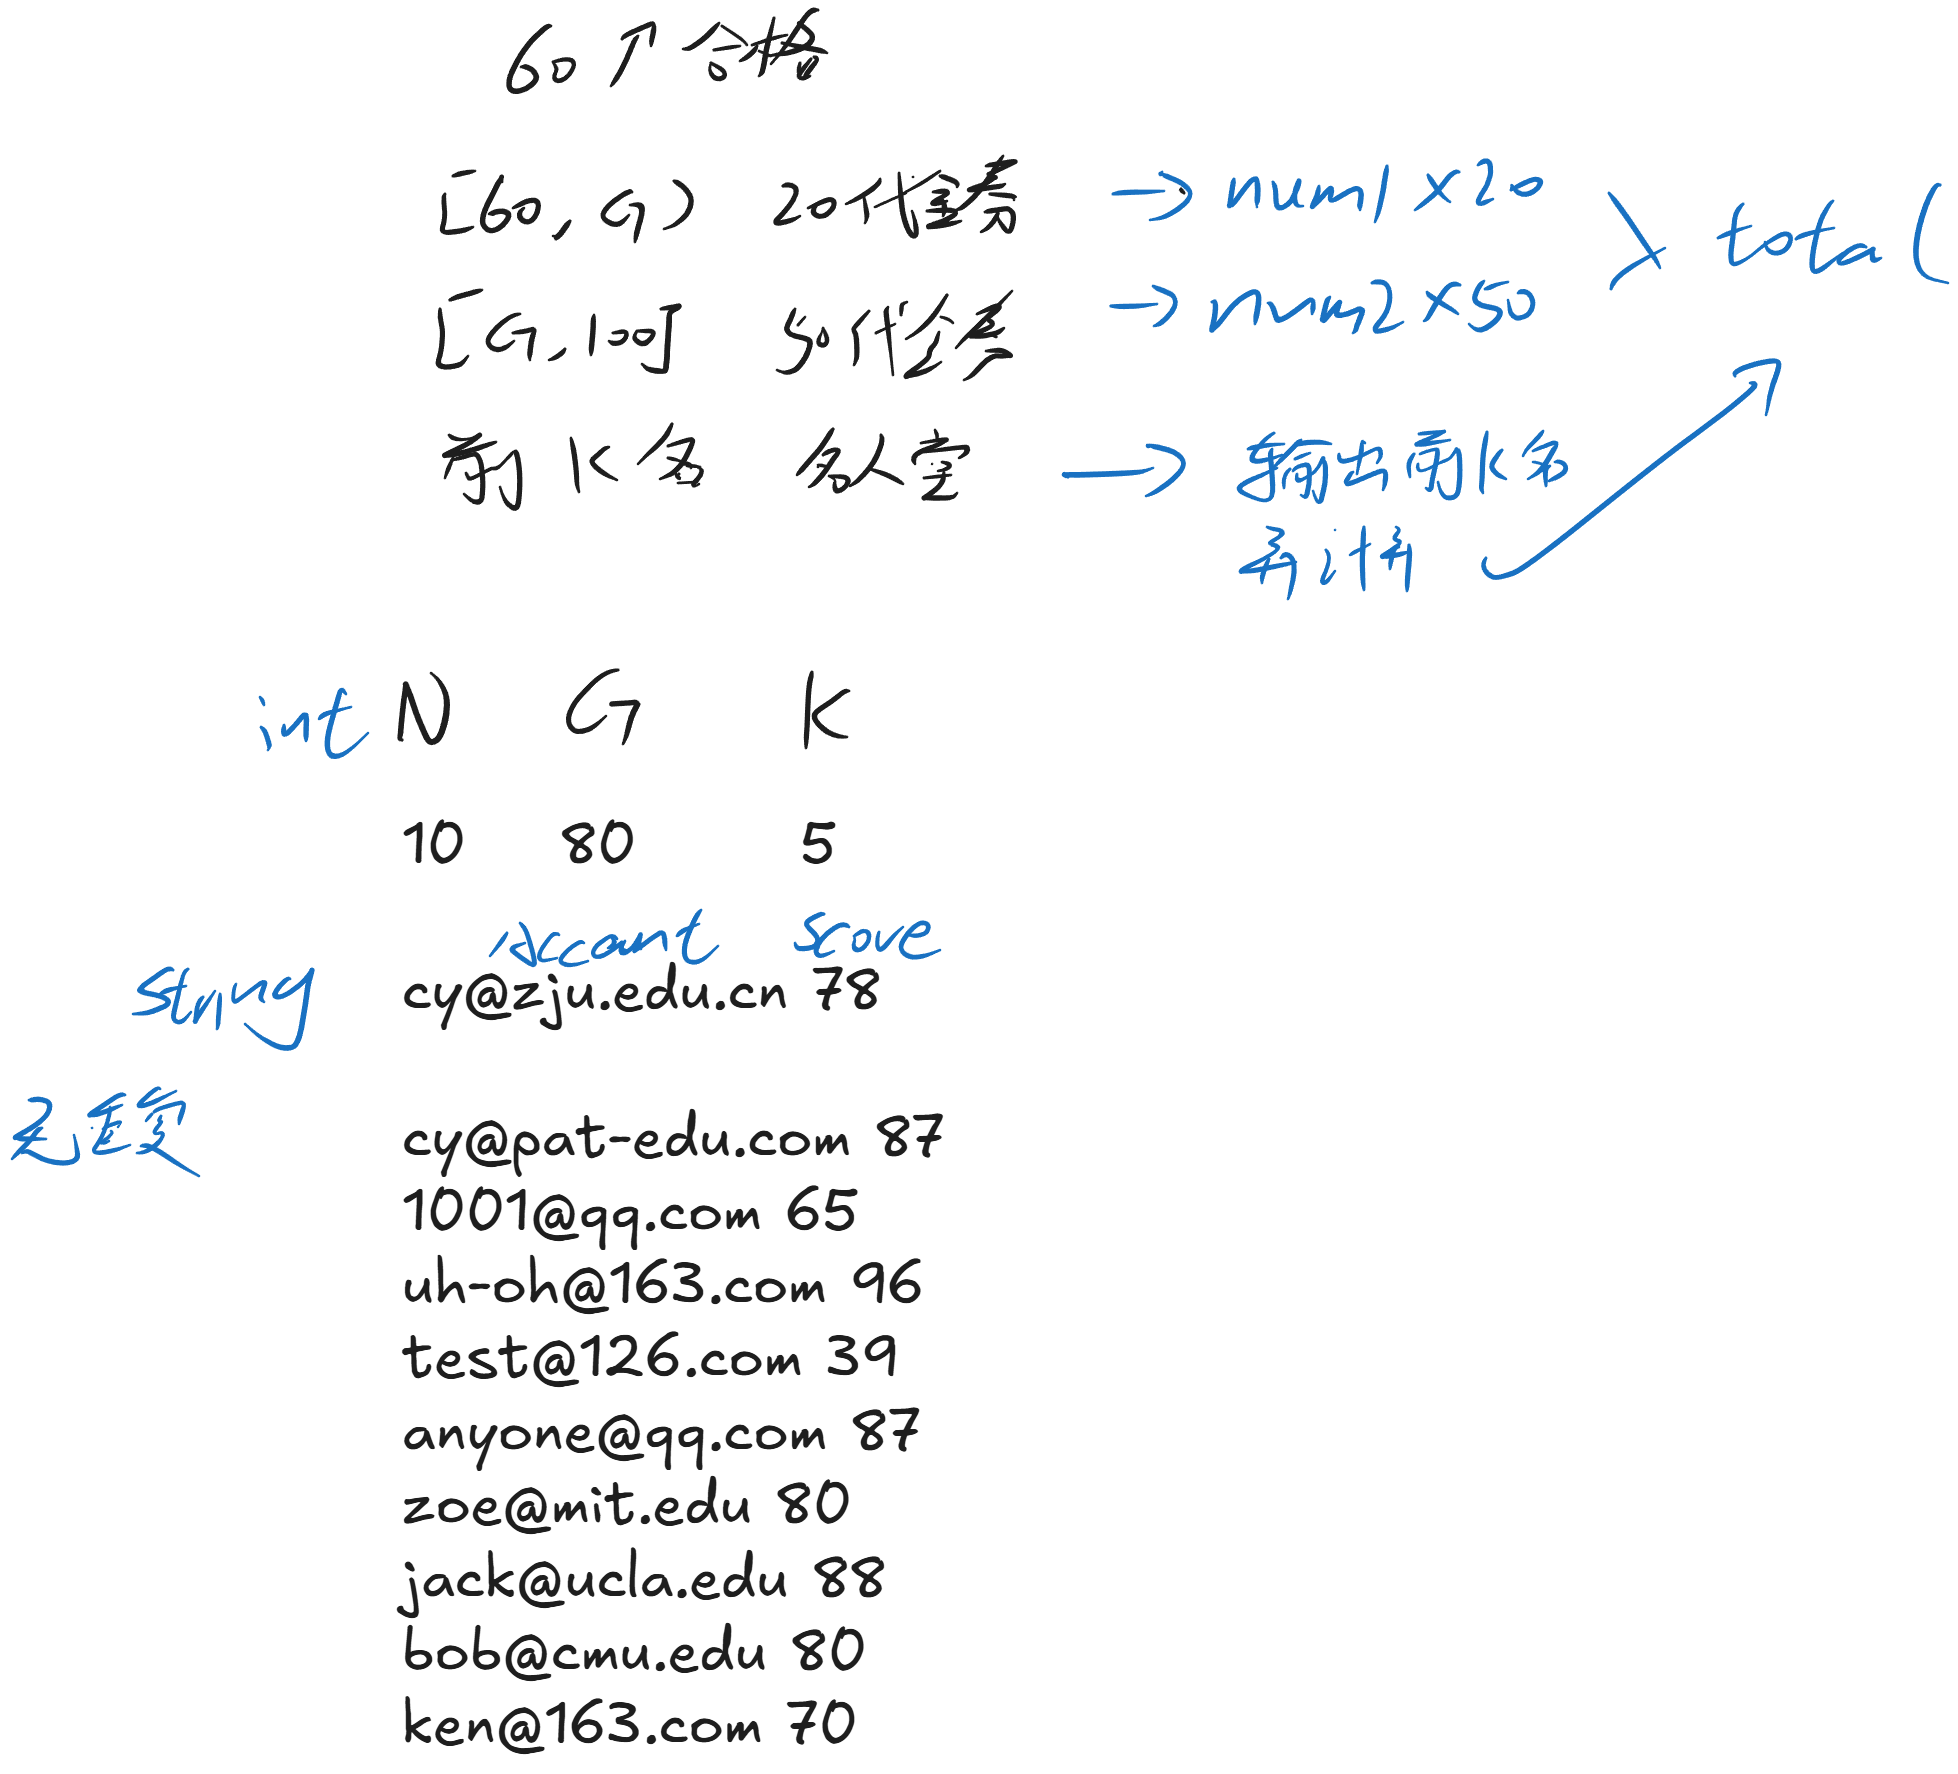 60↑合格
[60, G) 20代金券 → num1×20
total
[G,100] 50代金券 → num2×50
前K名 名人堂 → 输出前K名
并计算
int N G K
10 80 5
account score
string cy@zju.edu.cn 78
无重复
cy@pat-edu.com 87
1001@qq.com 65
uh-oh@163.com 96
test@126.com 39
anyone@qq.com 87
zoe@mit.edu 80
jack@ucla.edu 88
bob@cmu.edu 80
ken@163.com 70